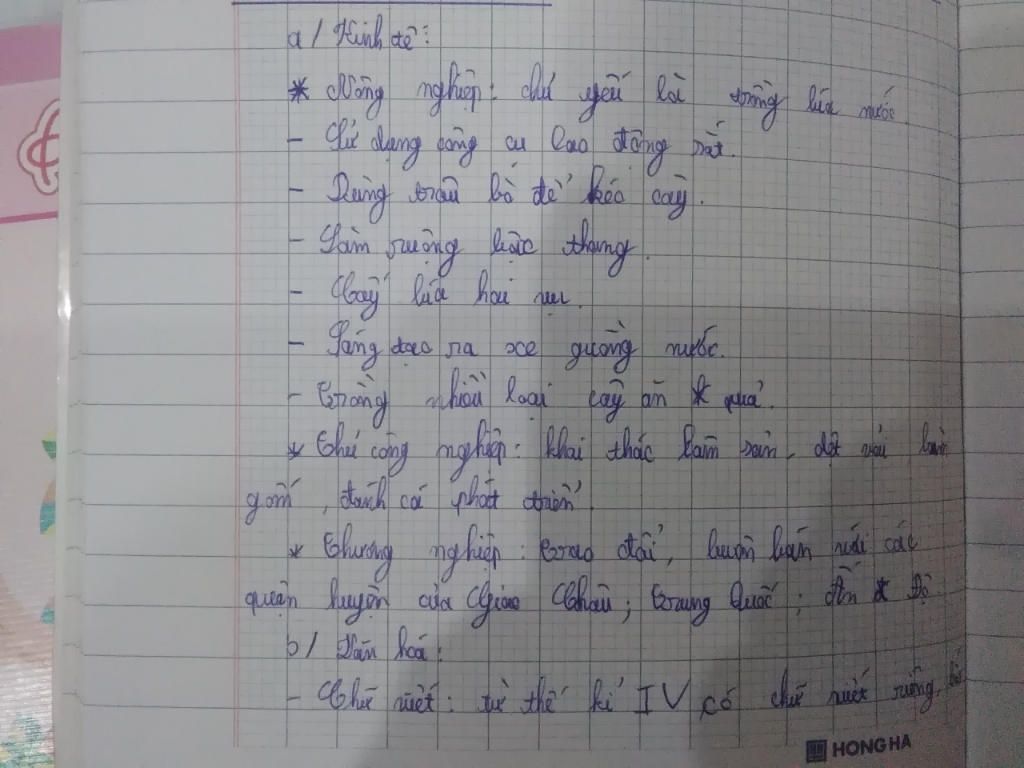 a/ Kinh tế:
* Nông nghiệp: chủ yếu là trồng lúa nước
- Sử dụng công cụ lao động sắt.
- Dùng trâu bò để kéo cày.
- Làm ruộng bậc thang.
- Cấy lúa hai vụ.
- Sáng tạo ra xe guồng nước.
- Trồng nhiều loại cây ăn quả.
* Thủ công nghiệp: khai thác lâm sản, dệt vải làm
gốm, đánh cá phát triển.
* Thương nghiệp: Trao đổi, buôn bán với các
quận huyện của Giao Châu; Trung Quốc; Ấn Độ.
b/ Văn hoá:
- Chữ viết: từ thế kỉ IV có chữ viết riêng,
HONG HA